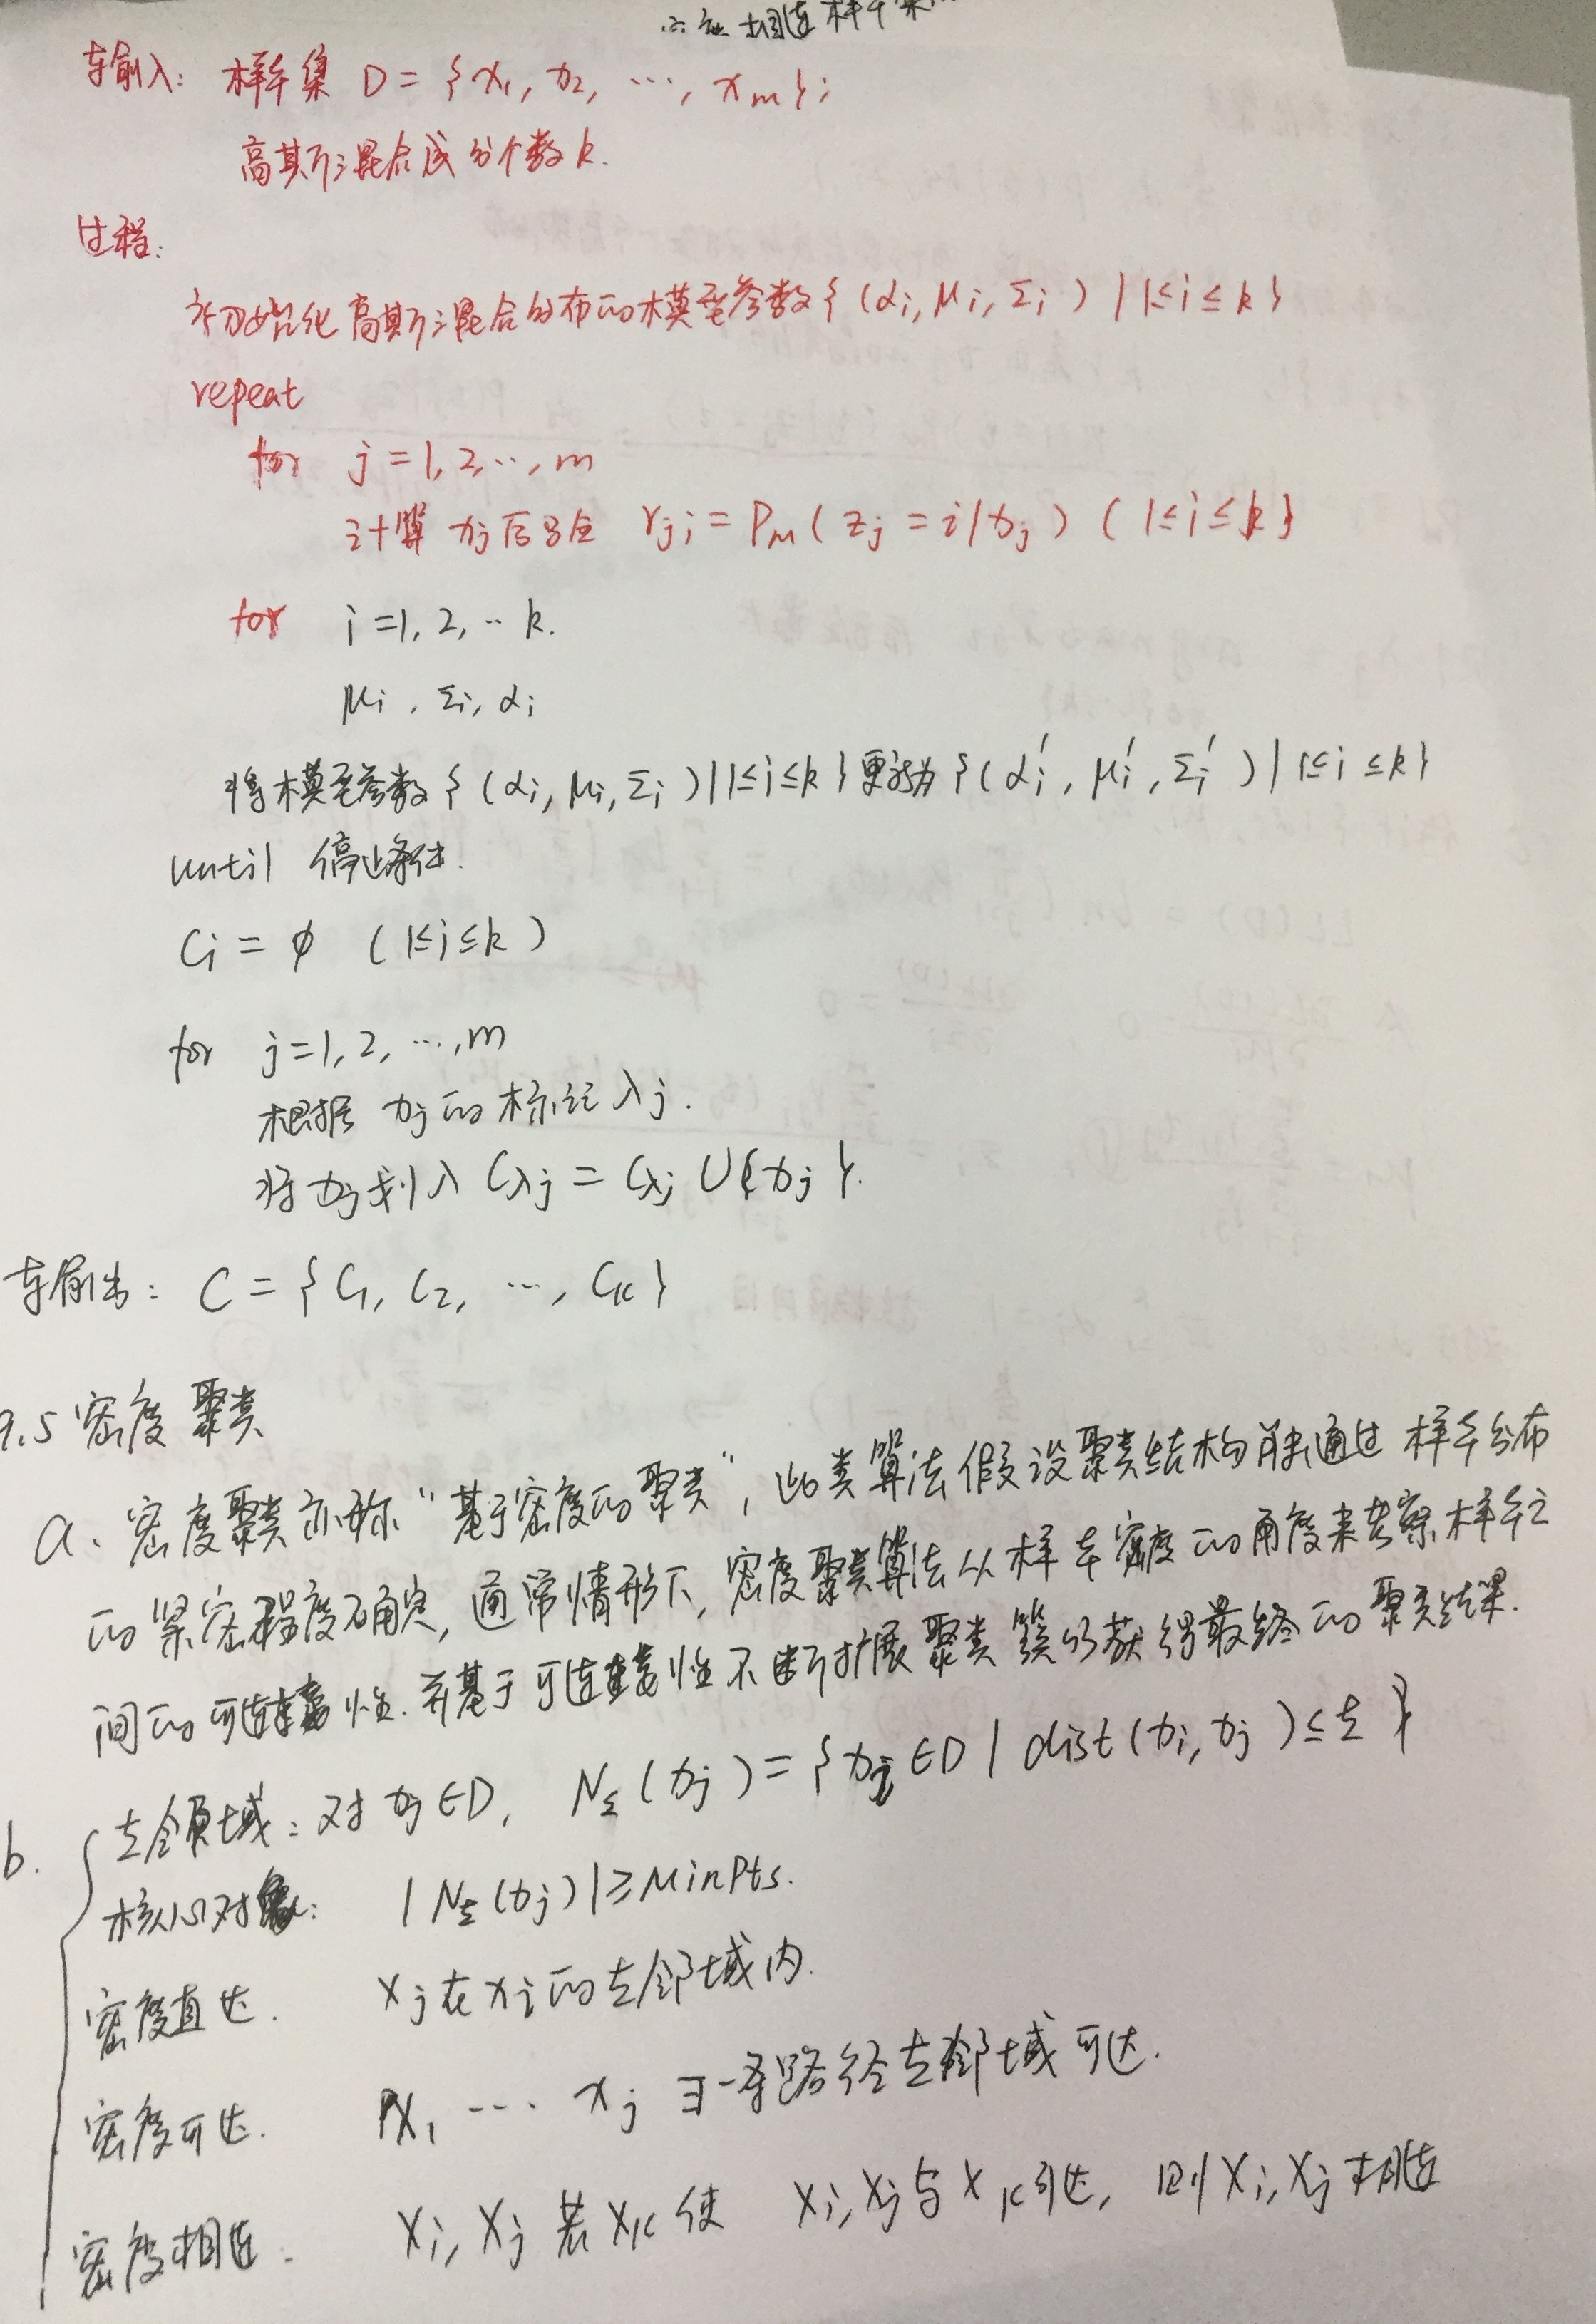 相连样本集
输入: 样本集 D = {x₁, x₂, ..., xₘ};
高斯混合成分个数k.
过程:
初始化高斯混合分布的模型参数{(αᵢ, μᵢ, Σᵢ) | 1≤i≤k}
repeat
for j=1,2,..,m
计算xⱼ后验 γⱼᵢ = Pₘ(zⱼ=i|xⱼ) (1≤i≤k}
for i=1,2,..k.
μᵢ, Σᵢ, αᵢ
将模型参数{(αᵢ, μᵢ, Σᵢ)|1≤i≤k}更新为{(αᵢ', μᵢ', Σᵢ')|1≤i≤k}
until 停止条件.
Cᵢ = ∅ (1≤i≤k)
for j=1,2,...,m
根据xⱼ的标记λⱼ.
将xⱼ划入 C_λⱼ = C_λⱼ ∪{xⱼ}.
输出: C = {C₁, C₂, ..., Cₖ}
9.5 密度聚类
a. 密度聚类亦称“基于密度的聚类”, 此类算法假设聚类结构能通过样本分布
的紧密程度确定, 通常情形下, 密度聚类算法从样本密度的角度来考察样本之
间的可连接性. 并基于可连接性不断扩展聚类簇以获得最终的聚类结果.
b. ε领域: 对xⱼ∈D, N_ε(xⱼ) = {xᵢ∈D | dist(xᵢ, xⱼ)≤ε}
核心对象: |N_ε(xⱼ)|≥MinPts.
密度直达. xⱼ在xᵢ的ε邻域内.
密度可达. x₁ ... xⱼ ∃一条路径ε邻域可达.
密度相连. xᵢ, xⱼ 若xₖ使 xᵢ, xⱼ与xₖ可达, 则xᵢ, xⱼ相连